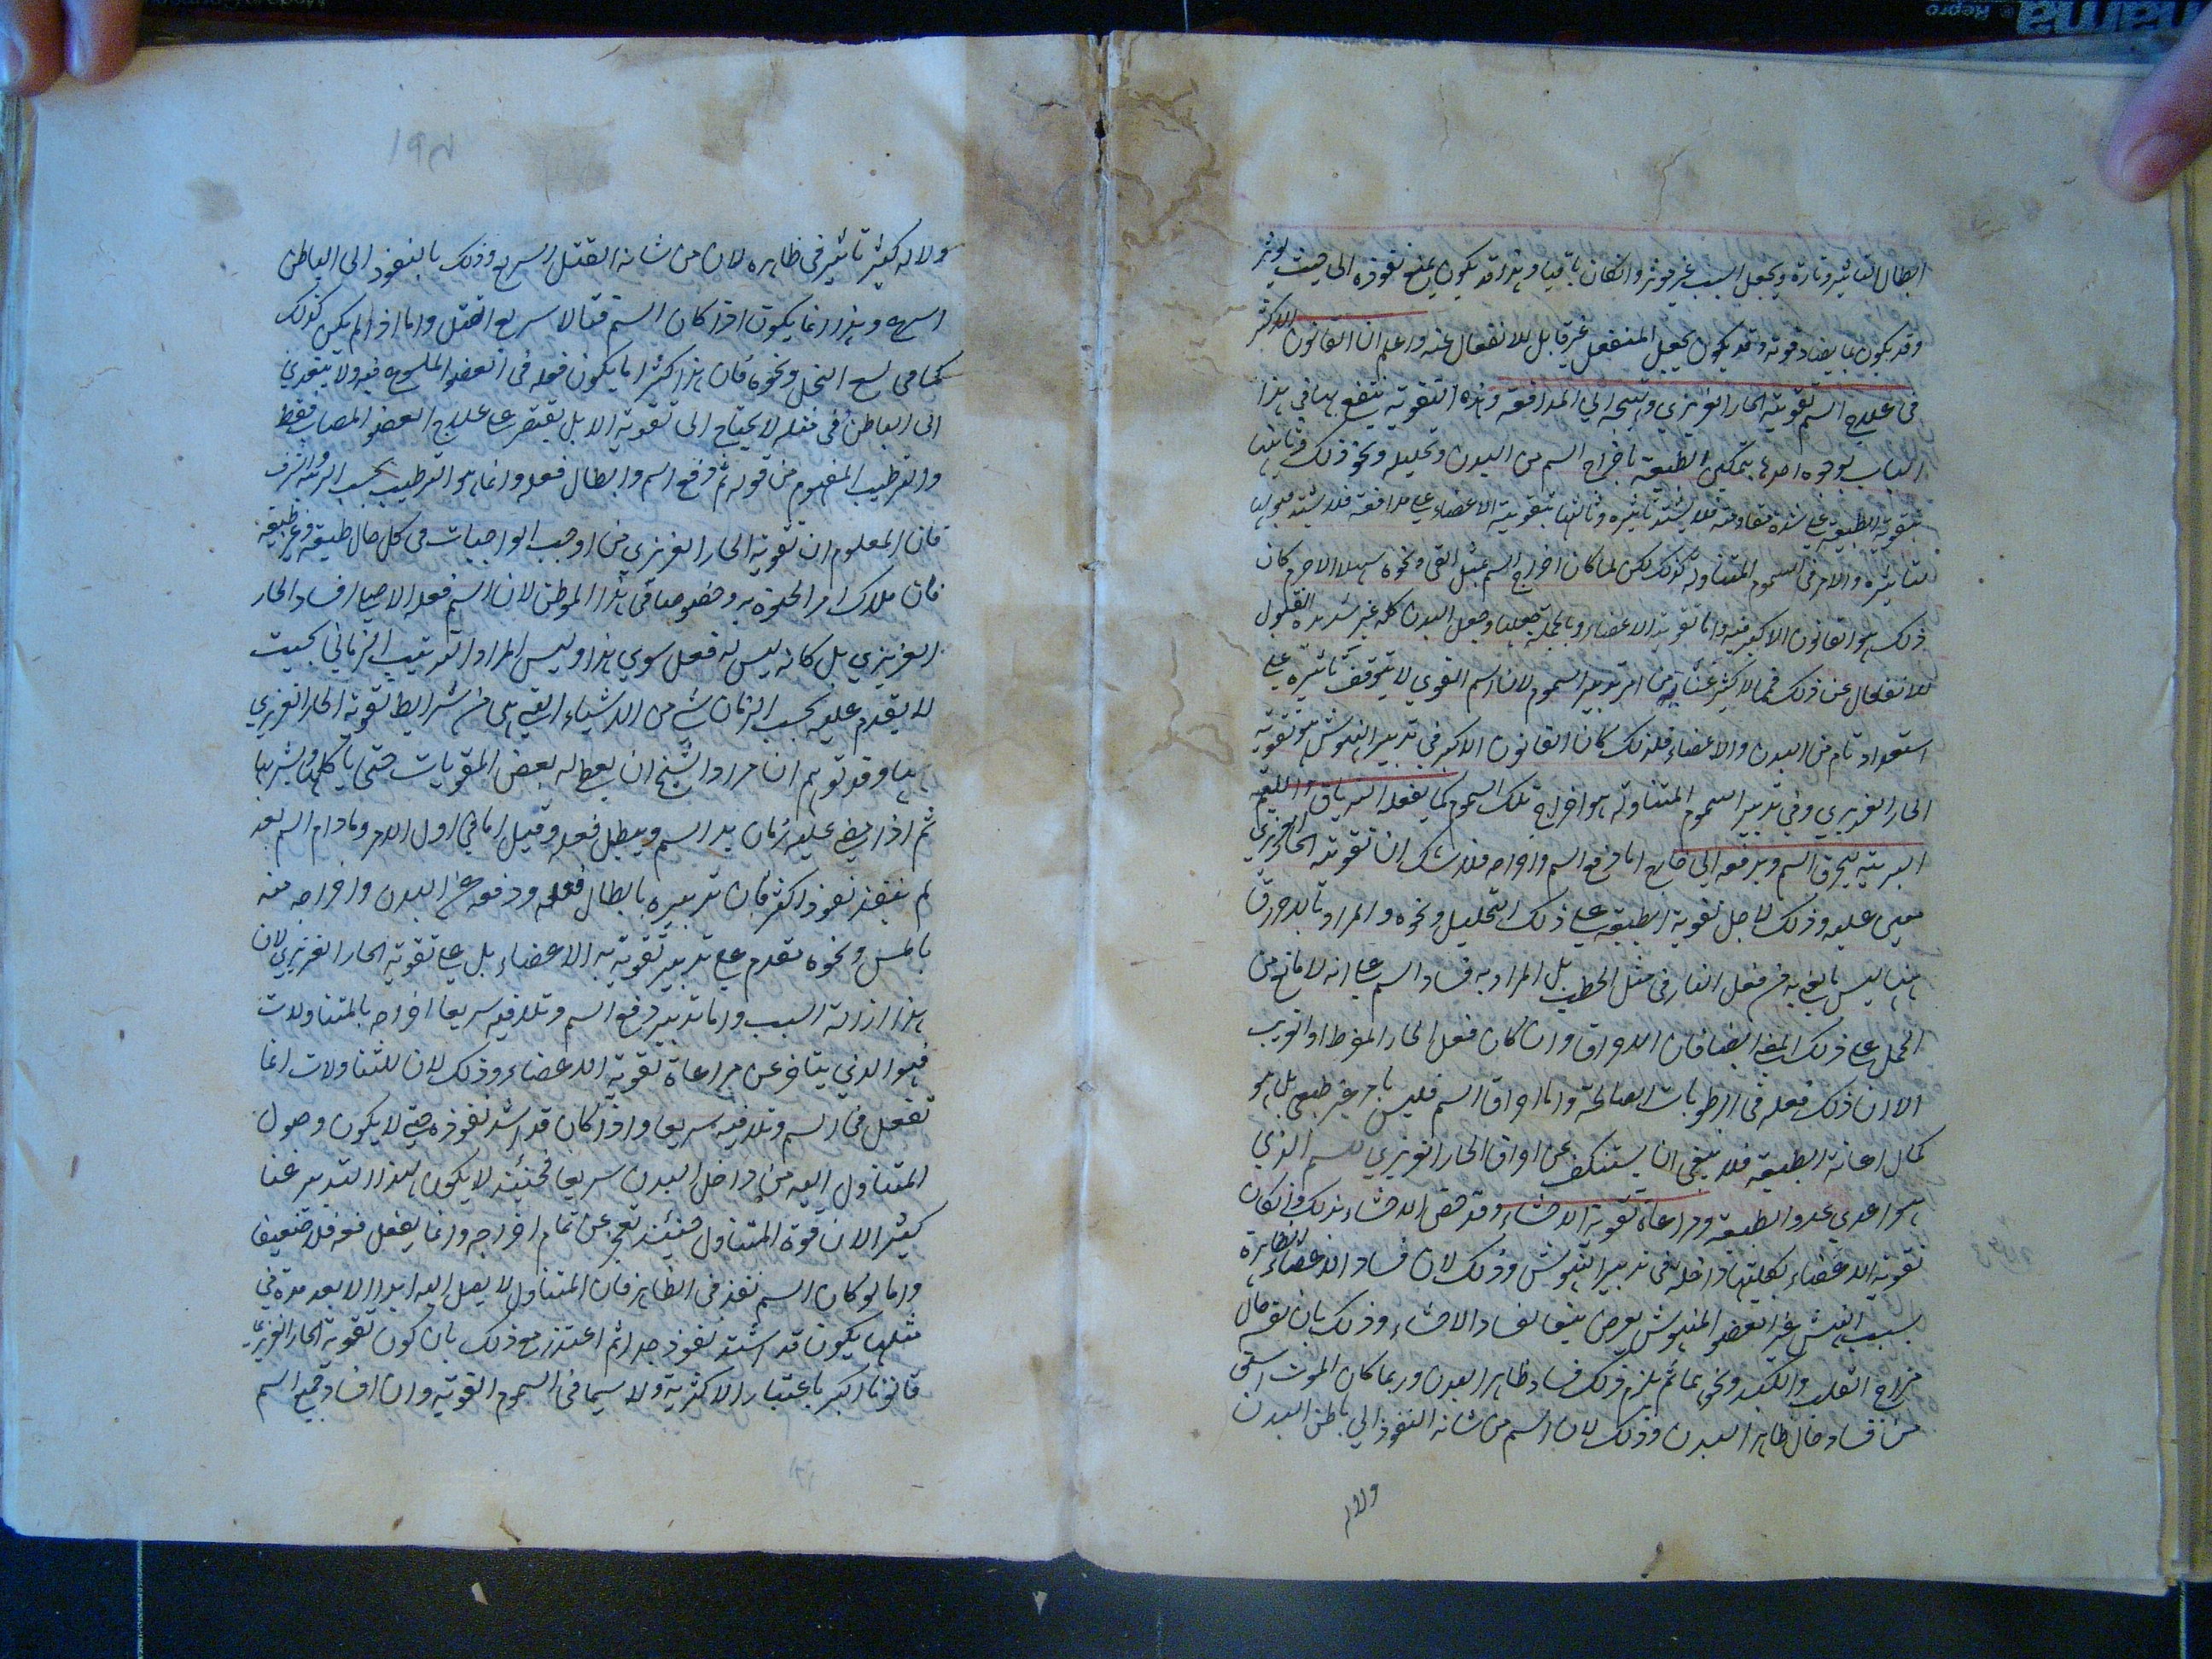 ابطال التاثير وتارة ويجعل السبب غير موثر وان كان باقيا وهذا قد يكون يمنع نفوذه الى حيث يوثر
وقد يكون بما يضاد قوته وقد يكون يجعل المنفعل غير قابل للانفعال عنه واعلم ان القانون الاكثر
فى علاج السم تقوية الحار الغريزي وتهييجه الي المدافعة وهذه التقوية ينتفع بها في هذا
الباب بوجوه احدها بتمكين الطبيعة باخراج السم من البدن وتحليله ونحو ذلك وثانيها
بتقوية الطبيعة على شدة مقاومته فلا يشتد تاثيره وثالثها بتقوية الاعضاء على مدافعته فلا يشتد قبولها
لتاثيره والامر فى السموم المتناولة كذلك لكن لما كان اخراج السم بمثل القى ونحوه سهلا لا جرم كان
ذلك هو القانون الاكبر فيه واما تقوية الاعضاء وبالجملة جعلها وجعل البدن كله غير شديد القبول
للانفعال عن ذلك فمما لا كثير غناء به من امر تدبير السموم لان السم القوي لا يتوقف تاثيره على
استعداد تام من البدن والاعضاء فلذلك كان القانون الاكبر في تدبير النهوش هو تقوية
الحار الغريزي وفي تدبير السموم المتناولة هو اخراج تلك السموم كما يفعله الترياق واللعبة
البربرية يحرق السم ويدفعه الي خارج اما دفع السم واخراجه فلا شك ان تقوية الحار الغريزي
معين عليه وذلك لاجل تقوية الطبيعة على ذلك التحليل ونحوه والمراد بالاحراق
ههنا ليس ما نعني به من فعل النار فى مثل الحطب بل المراد به فساد السم على انه لا مانع من
الحمل على ذلك المعنى ايضا فان الاحراق وان كان فعل الحار المفرط او الغريب
الا ان ذلك فعله فى الرطوبات الصالحة واما احراق السم فليس بامر غير طبيعى بل هو
كمال اعانة الطبيعة فلا ينبغى ان يستنكف عن احراق الحار الغريزي للسم الذي
هو اعدي عدو الطبيعة ومراعاة تقوية الاحشاء وقد خص الاحشاء بذلك وان كان
تقوية الاعضاء بكليتها داخلة فى تدبير النهوش وذلك لان فساد الاعضاء الظاهرة
بسبب النهش غير العضو المنهوش يعرض تبعا لفساد الاحشاء وذلك بان تفسد حال
مزاج القلب والكبد ونحوهما ثم يلزم ذلك فساد ظاهر البدن وربما كان الموت اسبق
من فساد حال ظاهر البدن وذلك لان السم من شانه النفوذ الي باطن البدن
ولا
ولا له كثير تاثير فى ظاهره لان من شانه القتل السريع وذلك بالنفوذ الى الباطن
اسرع وهذا انما يكون اذا كان السم قتالا سريع القتل واما اذا لم يكن كذلك
كما فى لسع النحل ونحوه فان هذا كثيرا ما يكون فعله فى العضو الملسوع فيه ولا يتعدى
الى الباطن ففى مثله لا يحتاج الى تقوية الا بل يقتصر على علاج العضو المصاب فقط
والترطيب المفهوم من قوله ثم دفع السم وابطال فعله وانما هو الترطيب بحسب الرتبة والشرف
فان المعلوم ان تقوية الحار الغريزي من اوجب الواجبات فى كل حال طبيعية وغير طبيعية
فان ملاك امر الحيوة به وخصوصا فى هذا الموطن لان السم فعله الاصلي افساد الحار
الغريزي بل كانه ليس له فعل سوي هذا وليس المراد الترتيب الزمانى بحيث
لا يقدم عليه بحسب الزمان شي من الاشياء التى هى من شرايط تقوية الحار الغريزي
بها وقد توهم ان مراد الشيخ ان يعطى له بعض المقويات حتى ياكلها ويشربها
ثم اذا مضى عليه زمان يدر السم ويبطل فعله وقيل اما في اول الامر ومادام السم بعد
لم ينفذ نفوذا كثيرا فان تدبيره بابطال فعله ودفعه عن البدن واخراجه منه
بالمس ونحوه تقدم على تدبير تقوية به الاعضاء بل على تقوية الحار الغريزي لان
هذا ازالة السبب واما تدبير دفع السم وتلافيه سريعا اخراجه بالمتناولات
فهو الذي يتاخر عن مراعاة تقوية الاعضاء وذلك لان للمتناولات انما
تفعل فى السم وتلافيه سريعا واذا كان قد اشتد نفوذه حتى لا يكون وصول
المتناول اليه من داخل البدن سريعا فحينئذ لا يكون لهذا التدبير غنا
كثيرا لان قوة المتناول حينئذ تعجز عن تمام اخراجه وانما يفعل فعه فعلا ضعيفا
واما لو كان السم نفذ فى الظاهر فان المتناول لا يصل اليه ابدا الا بعد مدة في
مثلها يكون قد اشتد نفوذ جدا ثم اعتذر مع ذلك بان كون تقوية الحار الغريزي
قانونا اكبر باعتبار الاكثرية ولا سيما فى السموم القوية وان افساد جميع السم